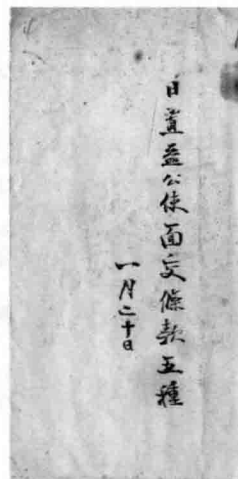 日置益公使面交條款五種
一月二十日